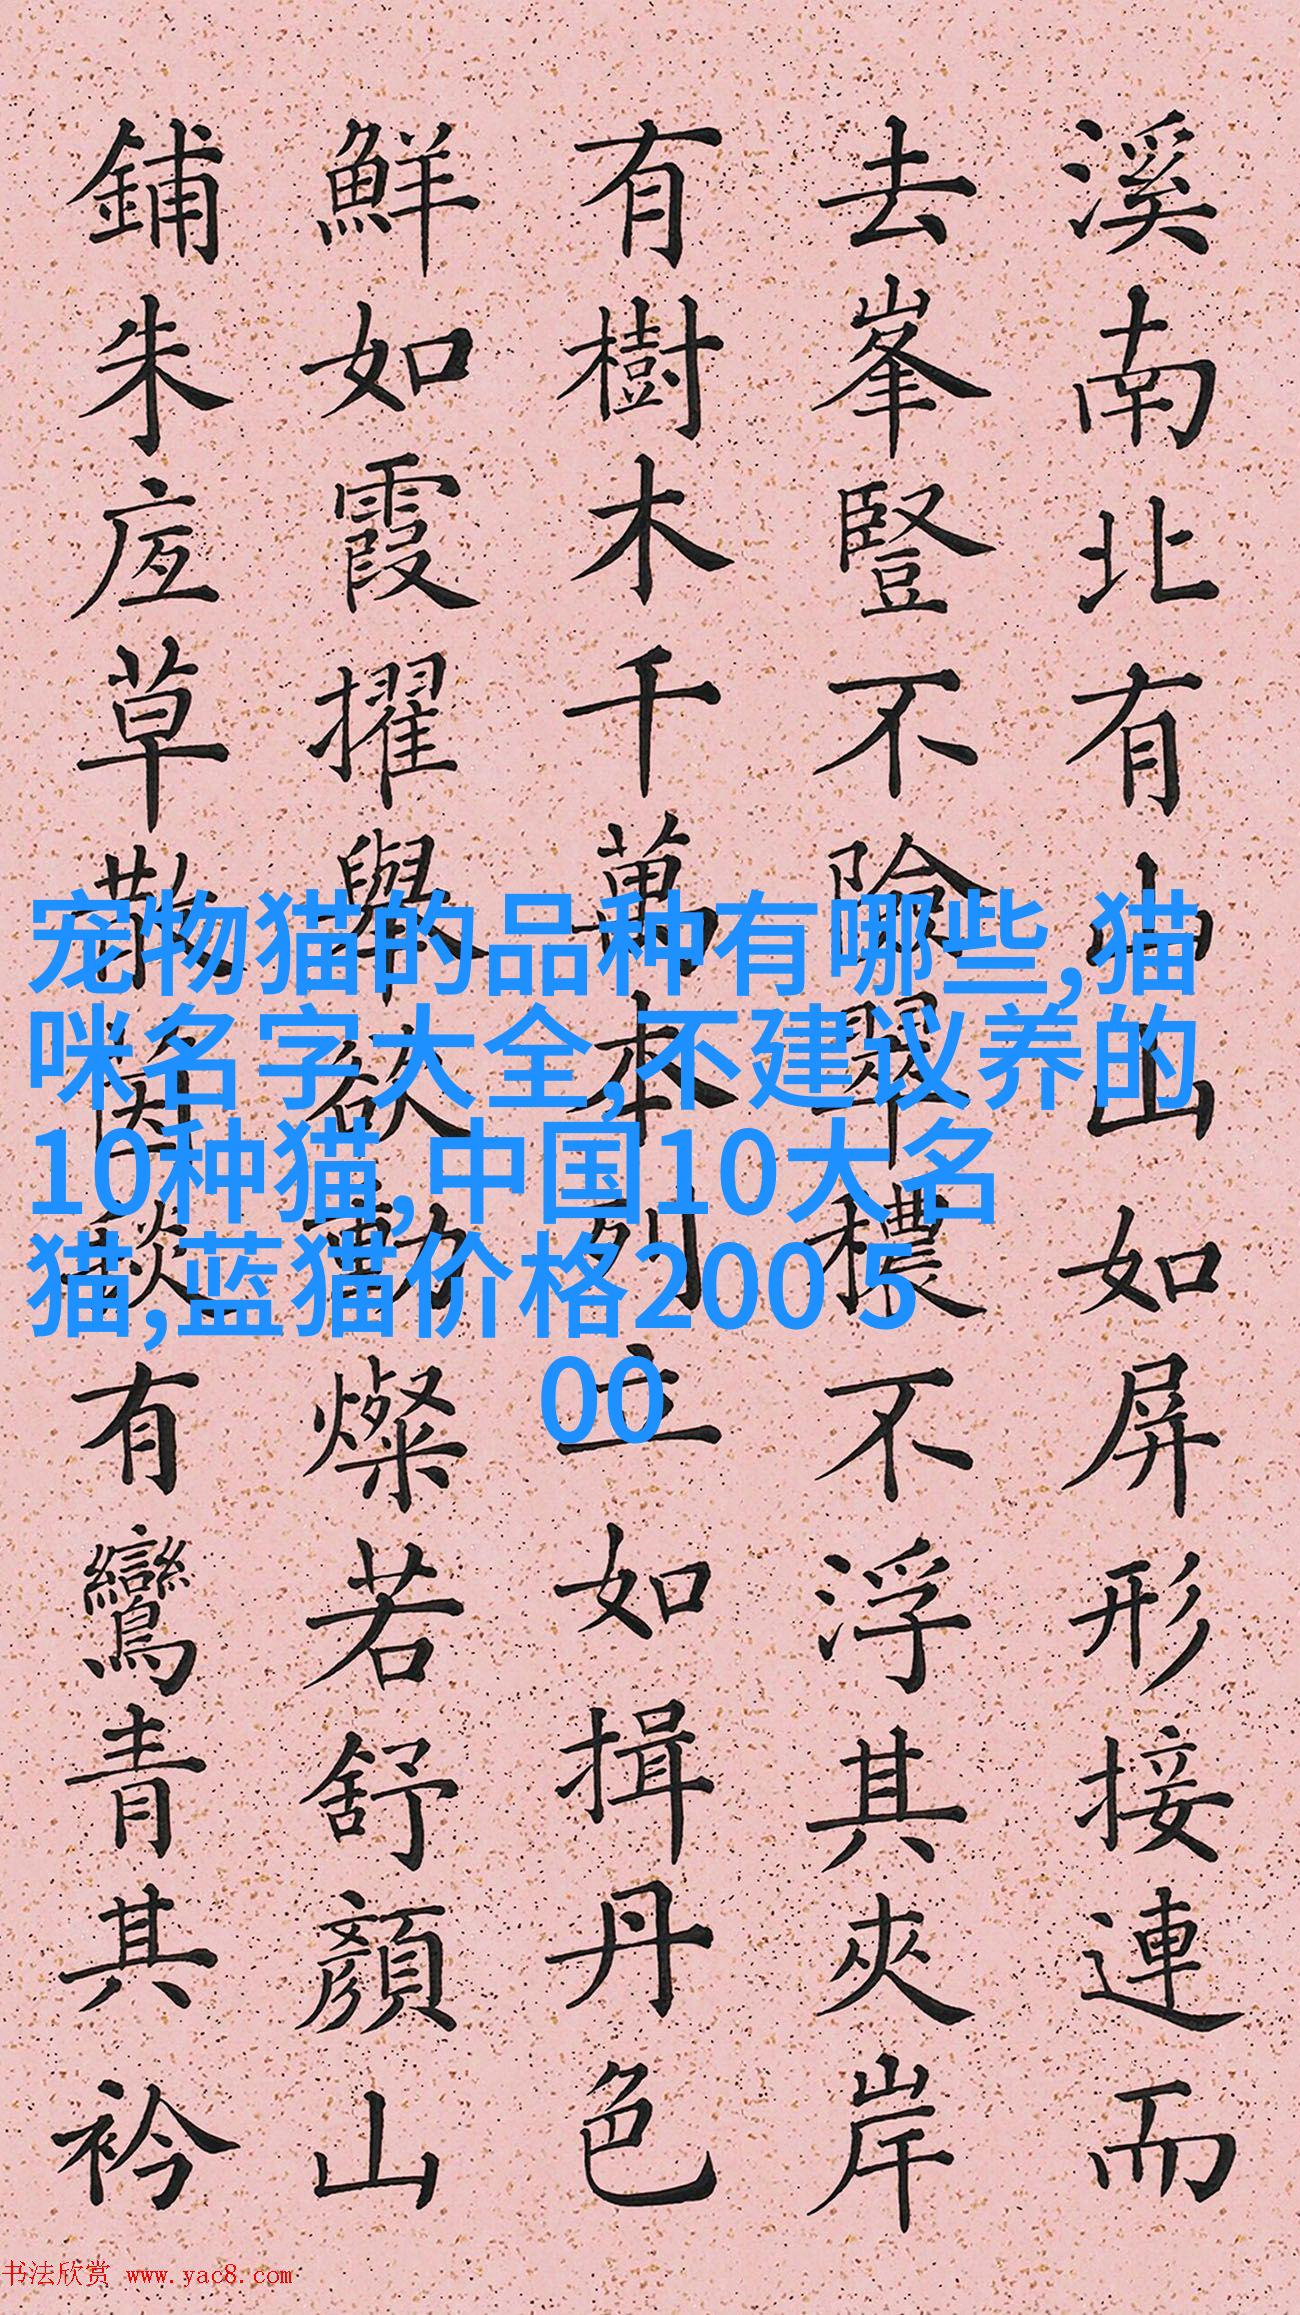 溪南北有山山如屏形接連而
去峯豎不險翠穠不浮其夾岸
有樹木千萬本列立如揖丹色
鮮如霞擢舉欲動燦若舒顏山
鋪朱底草散毯有鸞青其衿
宠物猫的品种有哪些,猫
咪名字大全,不建议养的
10种猫,中国10大名
猫,蓝猫价格200 5
00
书法欣赏 www.yac8.com